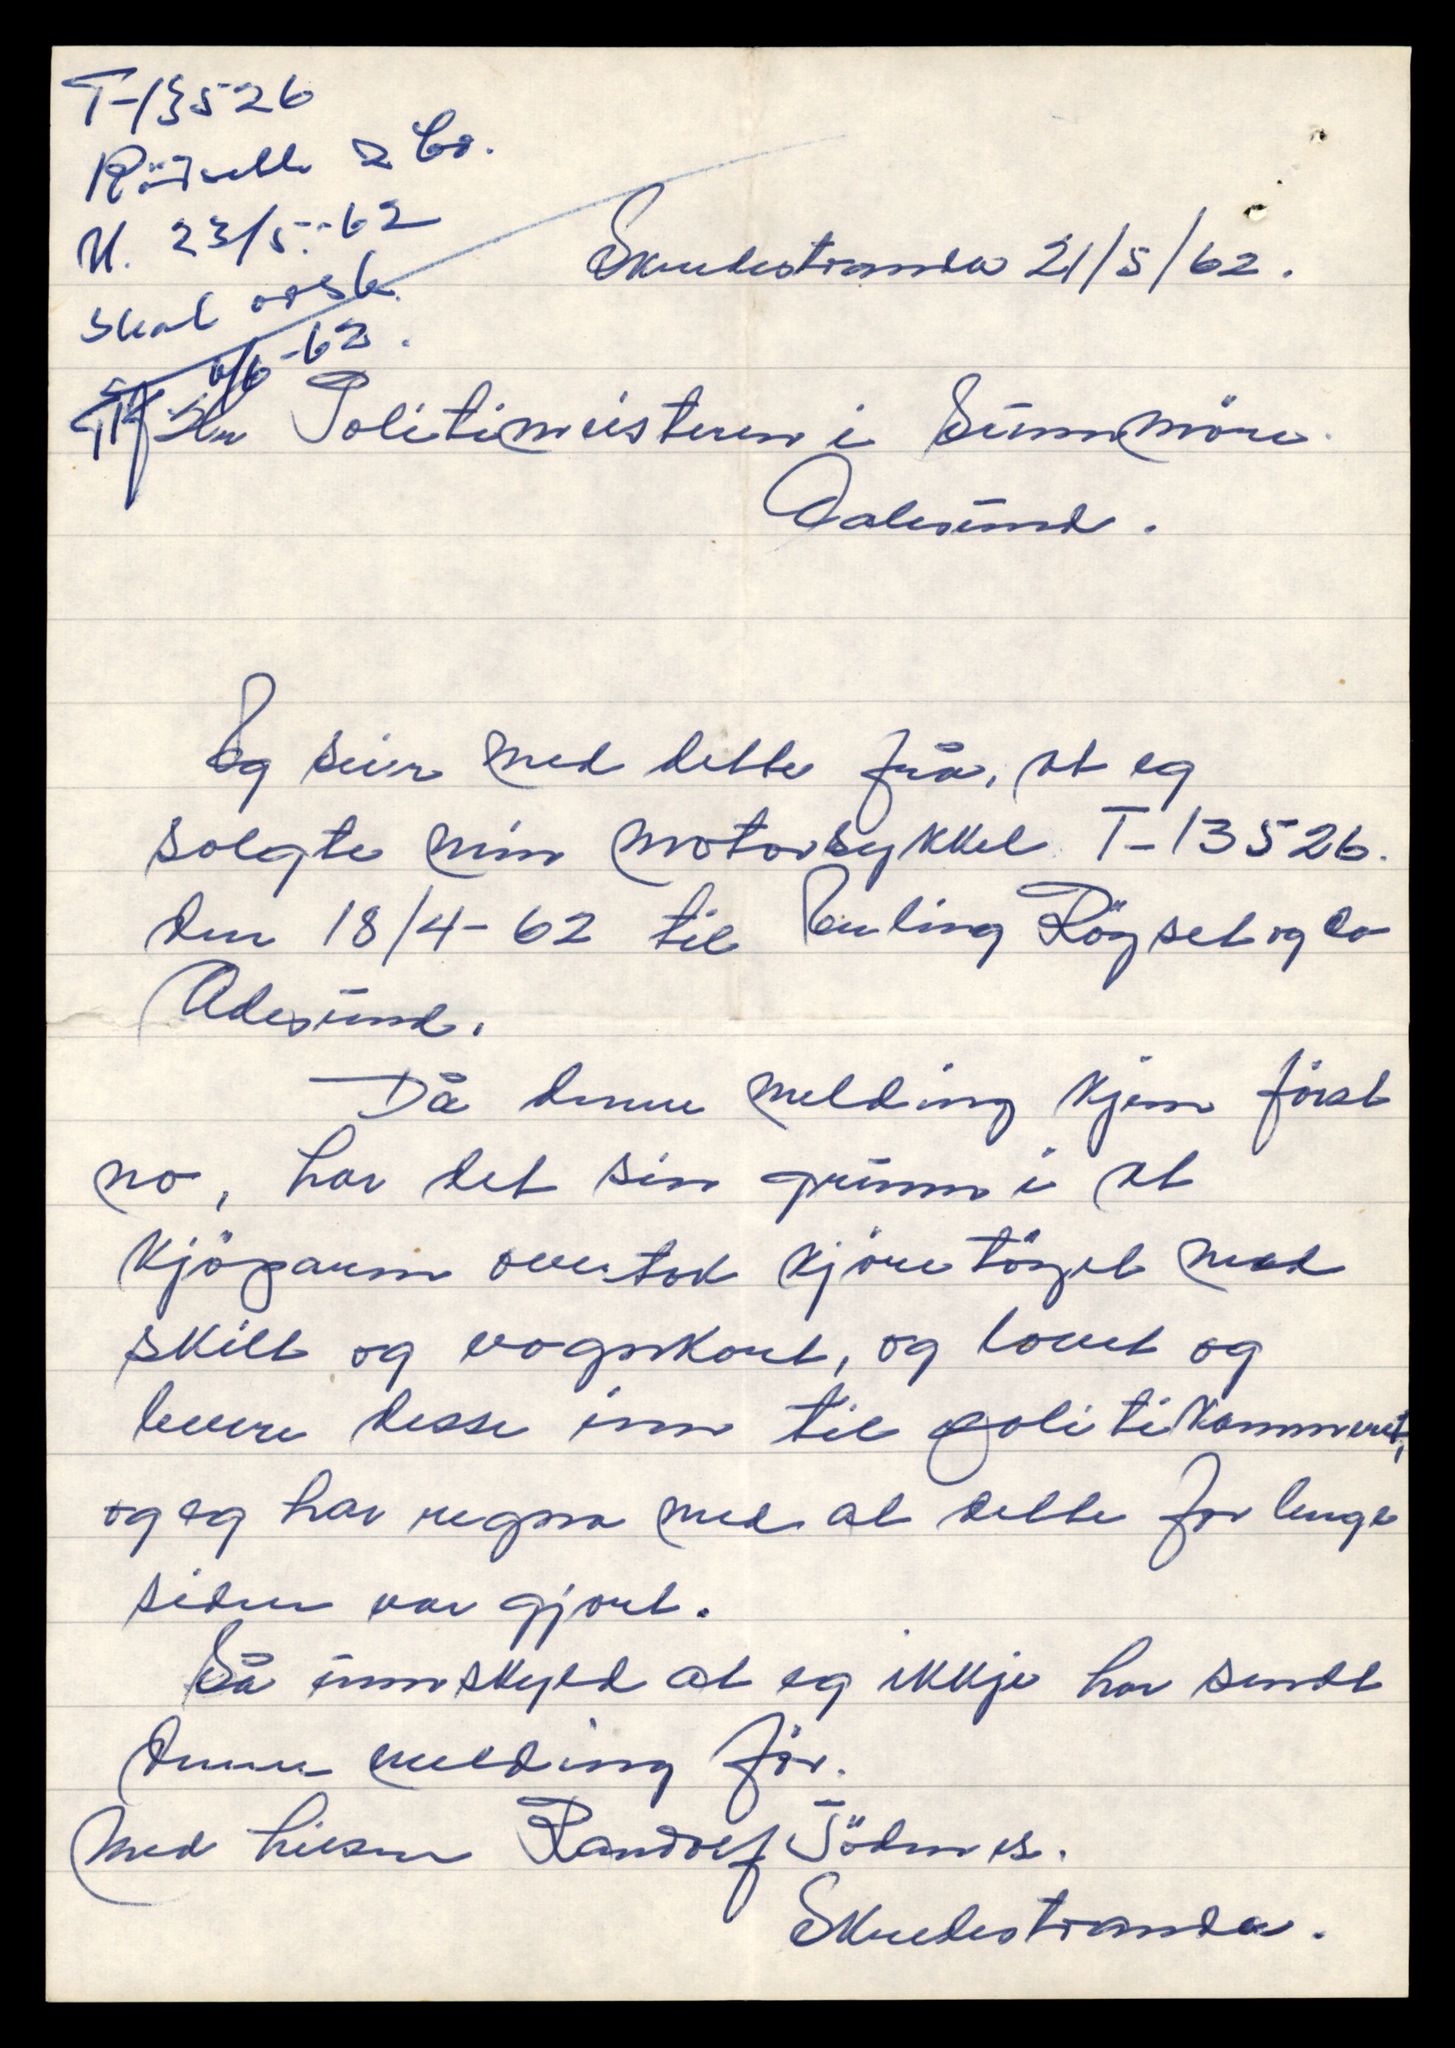 T-13526
& Co.
N. 23/5.-62
skal avsk.
6/6-62.
Skudestranda 21/5/62.
Hr Politimeisteren i Sunnmöre.
Aalesund.
Eg seier med dette frå, at eg
solgte min motorsykkel T-13526.
den 18/4-62 til Erling Rögset og co
Alesund.
Då denne melding kjem först
no, har det sin grunn i at
kjöparen overtok kjöretöyet med
skilt og vognkort, og lovet og
levere desse inn til politikammeret,
og eg har regna med at dette for lenge
siden var gjort.
Så unnskyld at eg ikkje har sendt
denne melding för.
Med hilsen Randolf Tödenes.
Skudestranda.